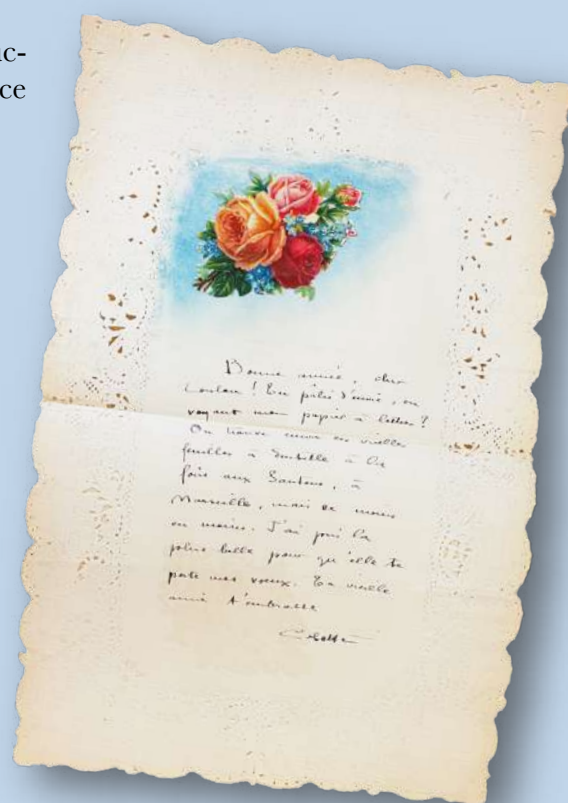 ic-
ce
Bonne année, cher
! Tu pâlis d'envie, en
voyant mon papier à lettres ?
On trouve encore ces vieilles
feuilles à dentelle à la
foire aux Santons, à
Marseille, mais de moins
en moins. J'ai pris la
plus belle pour qu'elle te
porte mes voeux. Ta vieille
amie t'embrasse
Colette